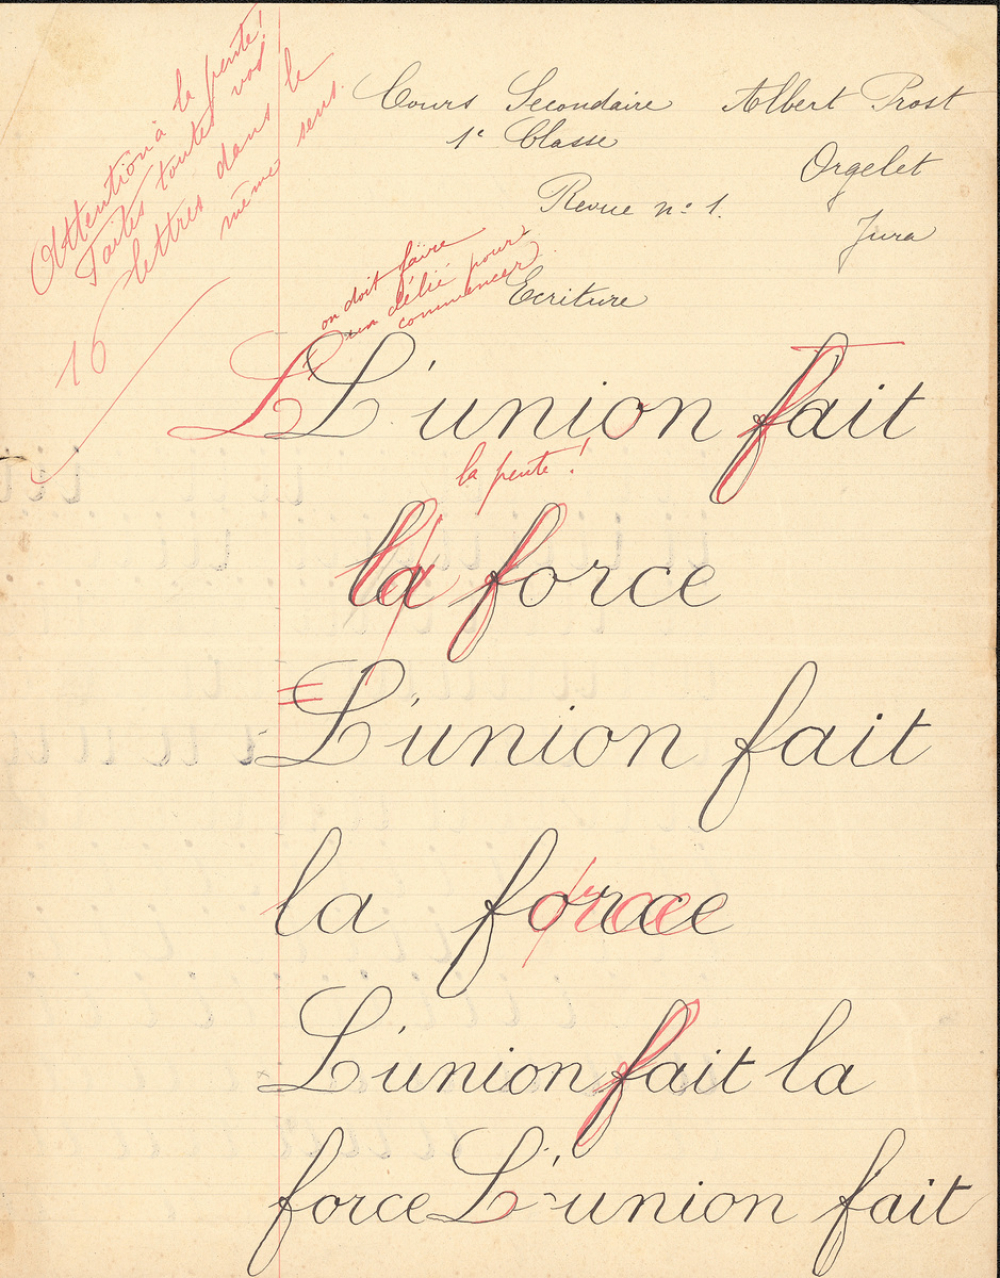 Attention à la pente!
Faites toutes vos
lettres dans le
même sens.
16
Cours Secondaire
1e Classe
Revue n° 1.
Albert Prost
Orgelet
Jura
Ecriture
on doit faire
un délié pour
commencer
L L'union fait
la pente!
la force
L'union fait
la force
L'union fait la
force L'union fait